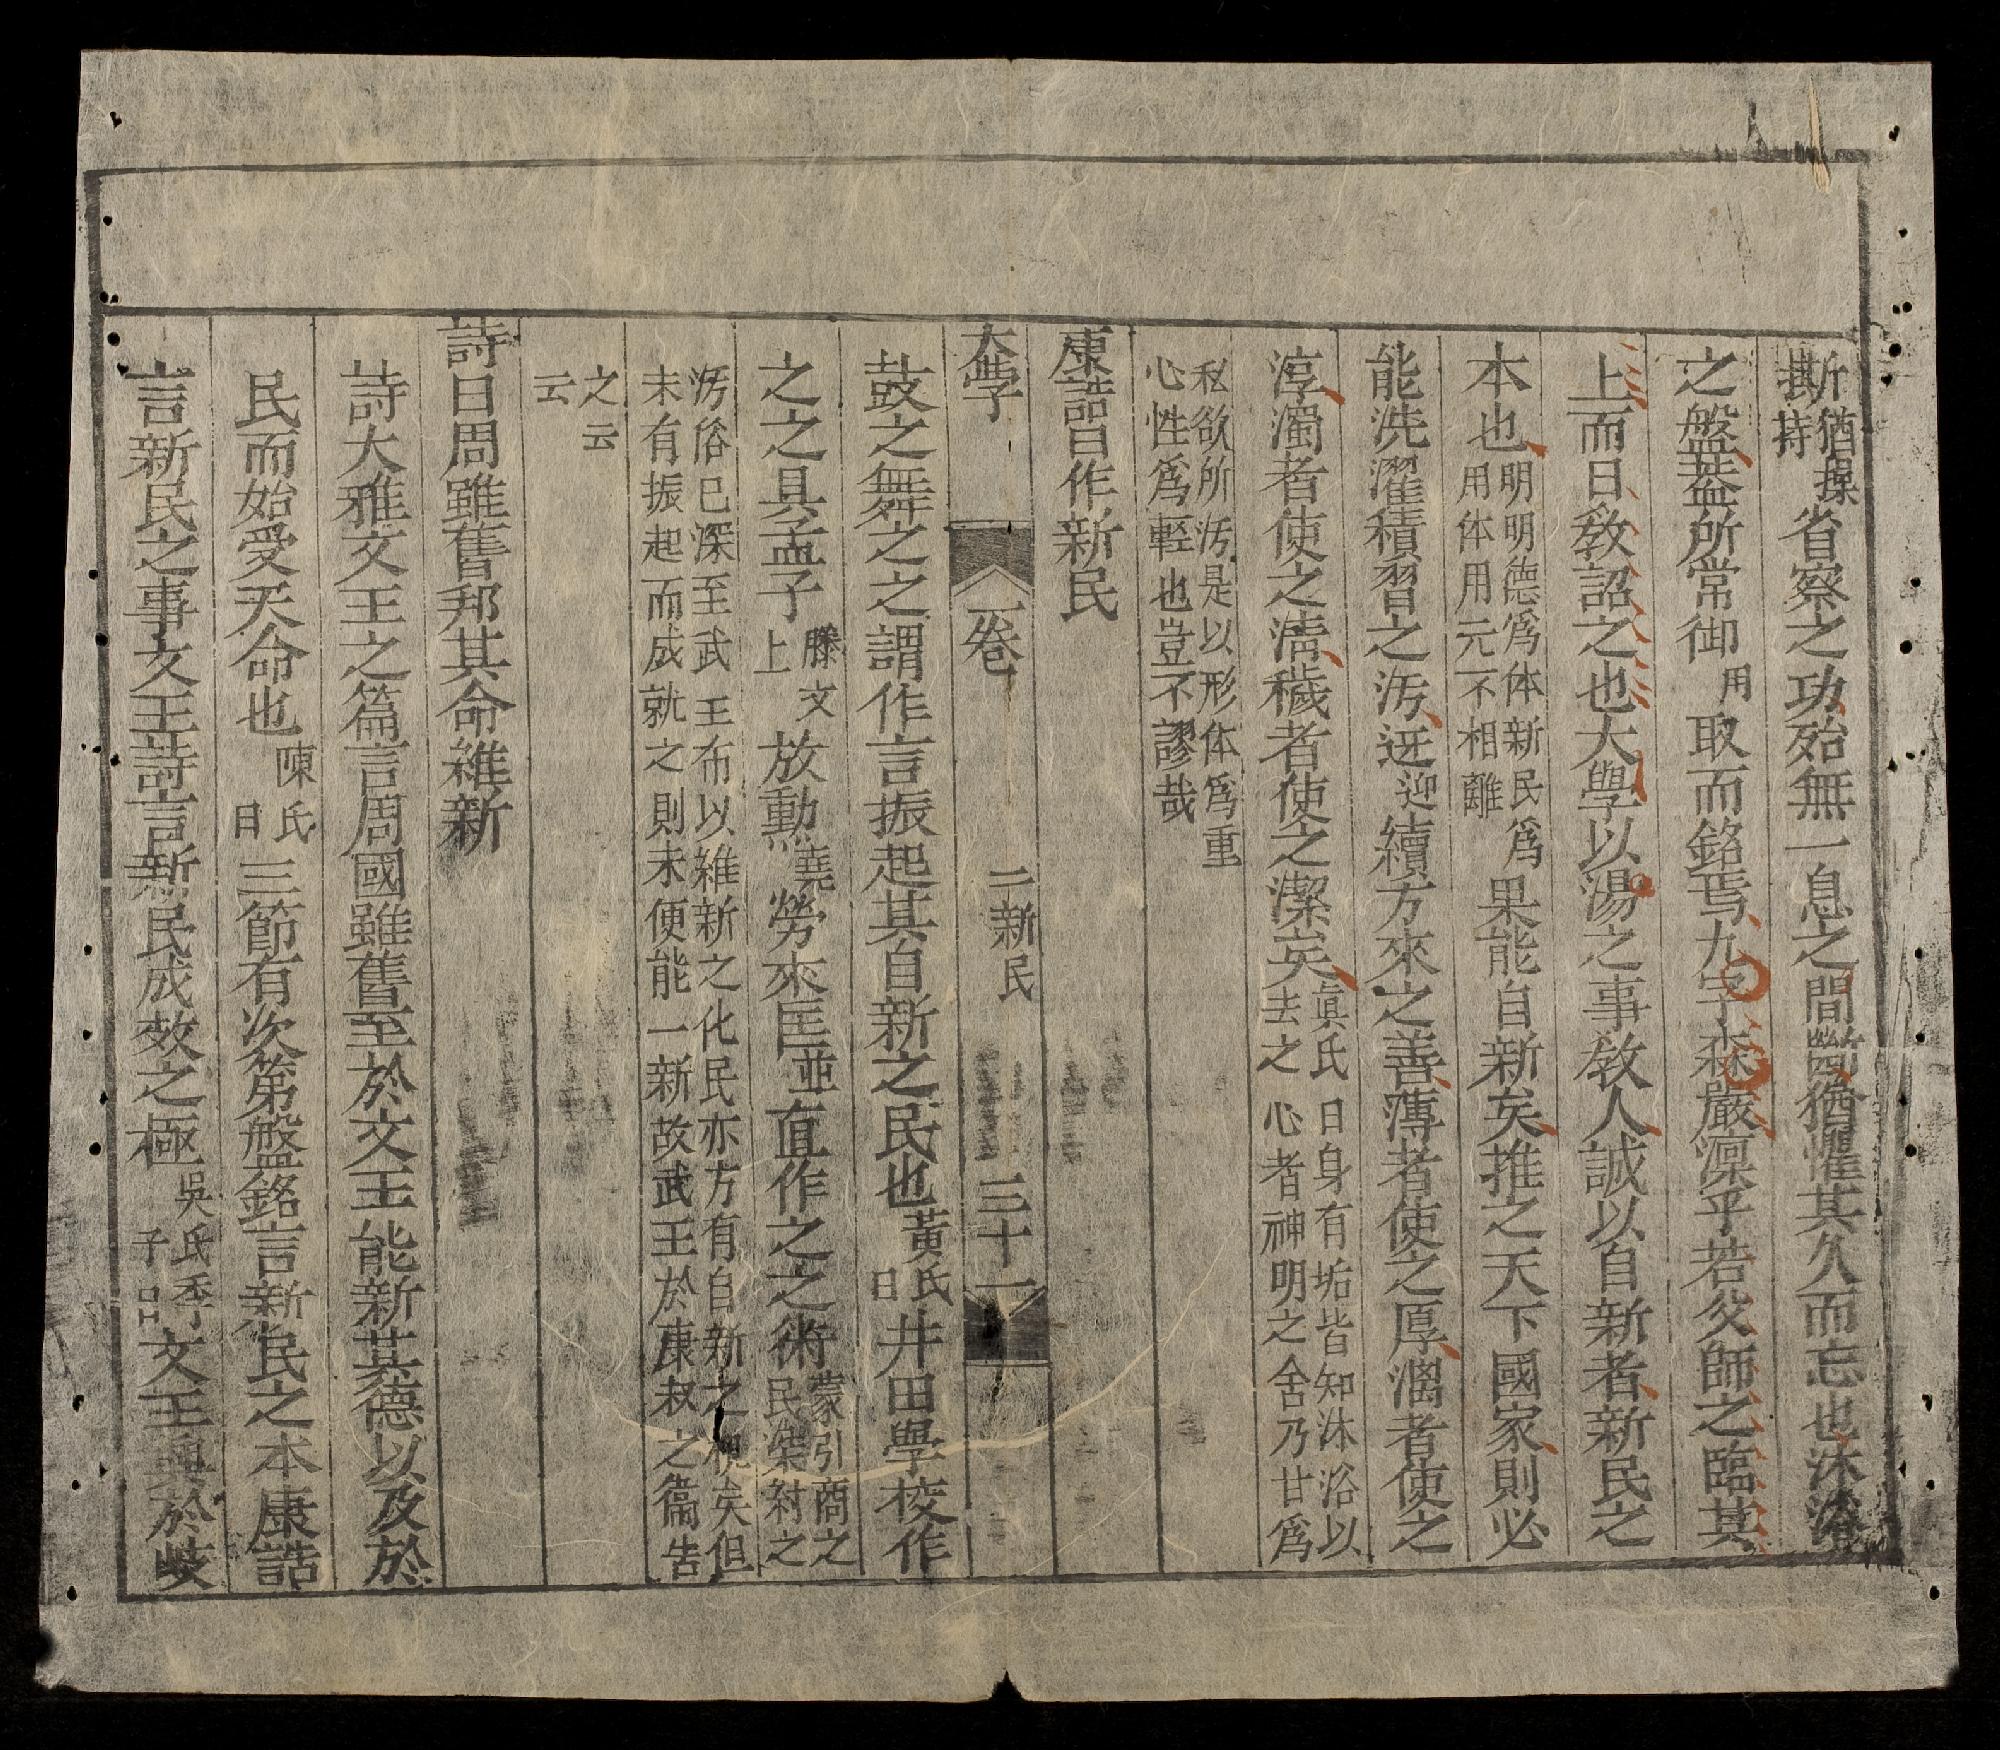 撕猶操持省察之功殆無一息之間斷猶懼其久而忘也沐浴
之盤葢所常御用取而銘焉九字森嚴凜乎若父師之臨其
上而日教詔之也大學以湯之事教人誠以自新者新民之
本也明明德爲体新民爲用体用元不相離果能自新矣推之天下國家則必
能洗濯積習之汚迓迎續方來之善薄者使之厚漓者使之
淳濁者使之清穢者使之潔矣眞氏曰身有垢皆知沐浴以去之心者神明之舍乃甘爲
私欲所汚是以形体爲重心性爲輕也豈不謬哉
康誥曰作新民
大學 一卷 二新民 三十一
鼓之舞之之謂作言振起其自新之民也黃氏曰井田學校作
之之具孟子滕文上放勳堯勞來匡並直作之之術蒙引商之民染紂之
汚俗已深至武王布以維新之化民亦方有自新之机矣但未有振起而成就之則未便能一新故武王於康叔之篇告
之云云
詩曰周雖舊邦其命維新
詩大雅文王之篇言周國雖舊至於文王能新其德以及於
民而始受天命也陳氏曰三節有次第盤銘言新民之本康誥
言新民之事文王詩言新民成效之極吳氏季子曰文王興於岐